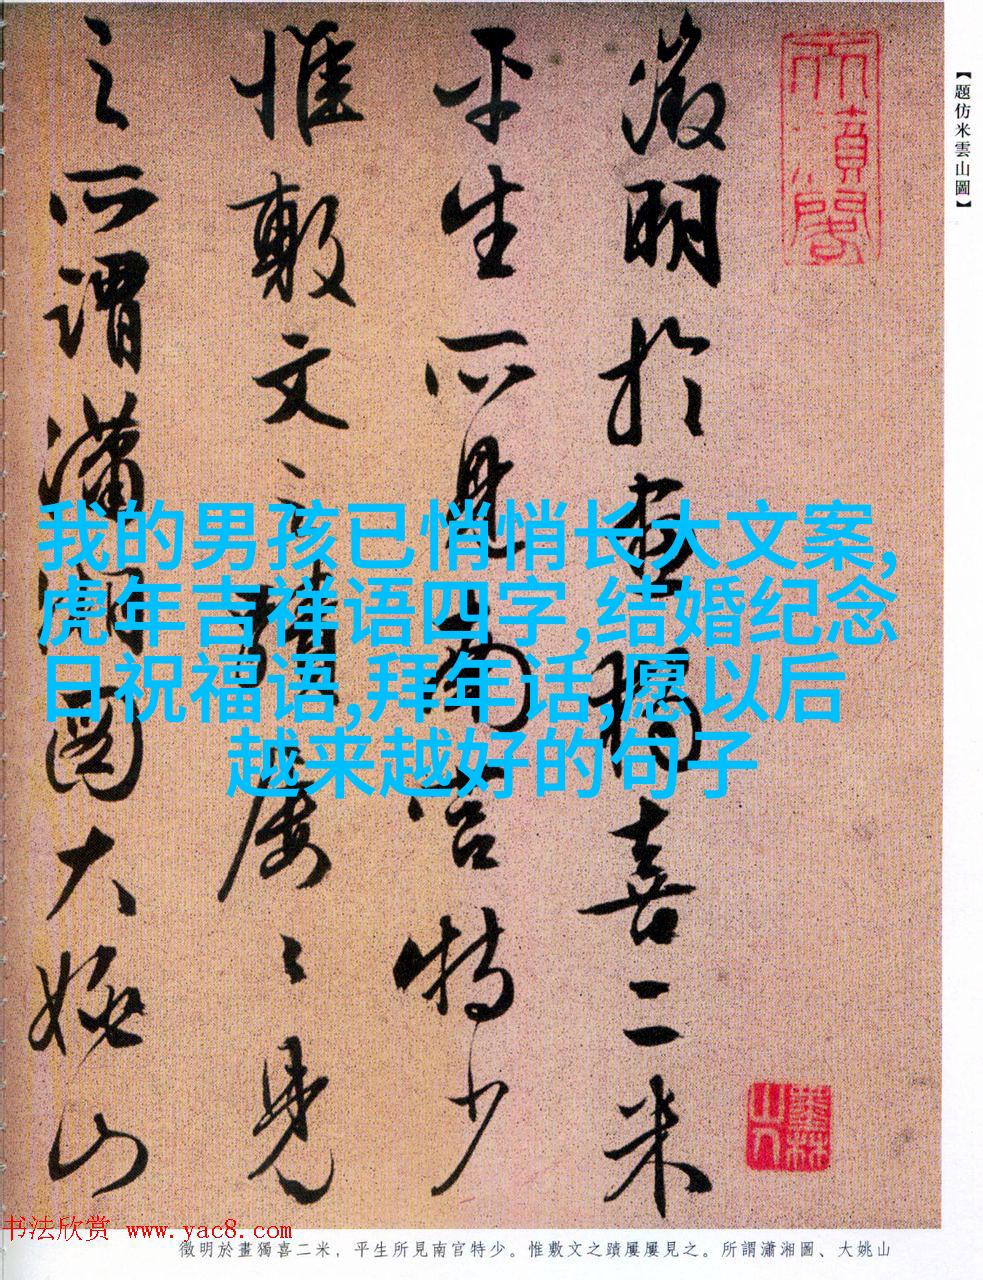 【題仿米雲山圖】
徵明於畫獨喜二米
平生所見南宮特少
惟敷文之蹟屢〻見
之所謂瀟湘圖大姚山
墨林
山人
我的男孩已悄悄长大文案,
虎年吉祥语四字,结婚纪念
日祝福语,拜年话,愿以后
越来越好的句子
书法欣赏 www.yac8.com
徵明於畫獨喜二米，平生所見南官特少。惟敷文之蹟屢屢見之。所謂瀟湘圖、大姚山